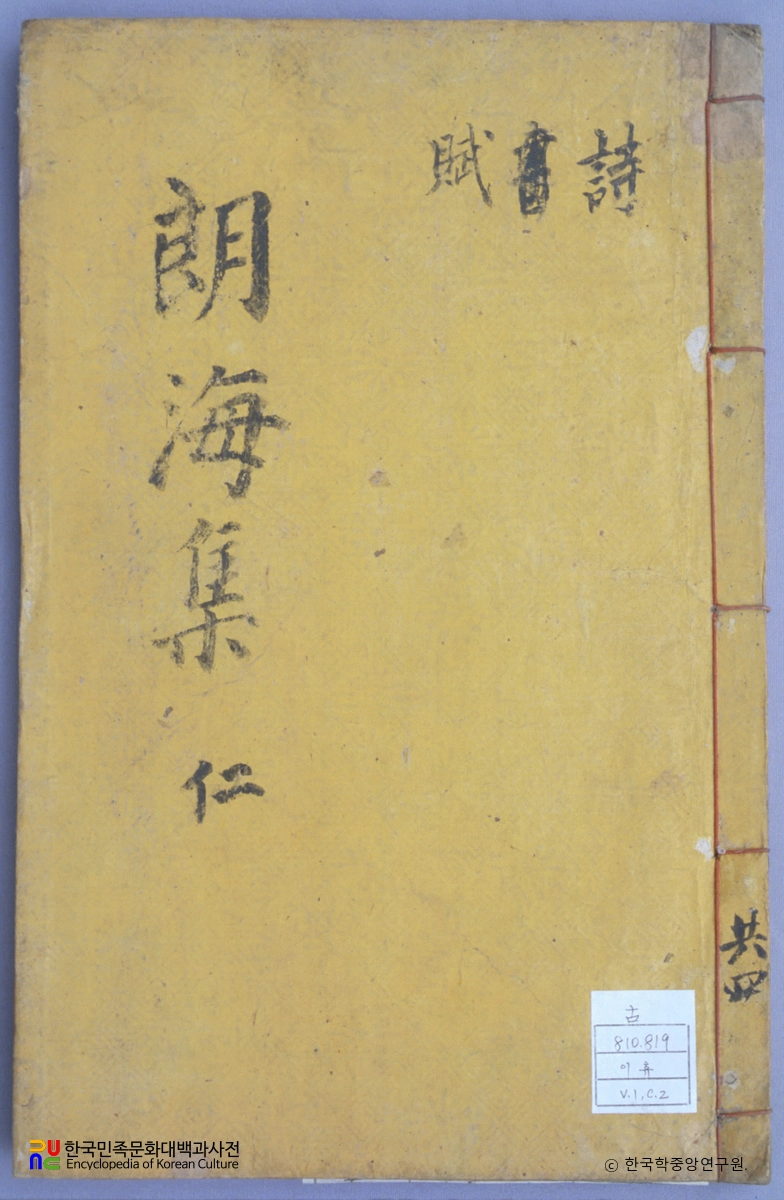 詩
賦
朗海集 仁
共四
古
810.819
V.1, C.2
한국민족문화대백과사전
Encyclopedia of Korean Culture
ⓒ 한국학중앙연구원.